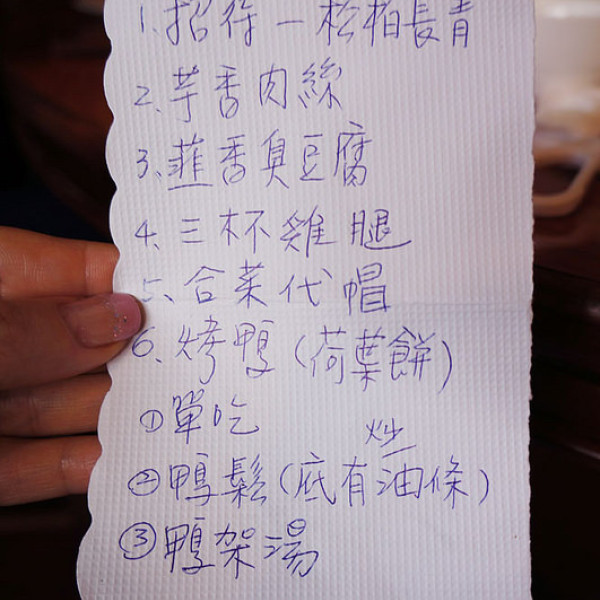 1.招待—松柏長青
2.芋香肉絲
3、韮香臭豆腐
4、三杯雞腿
5、合菜代帽
6、烤鴨(荷葉餅)
①單吃
炒
②鴨鬆(底有油條)
③鴨架湯